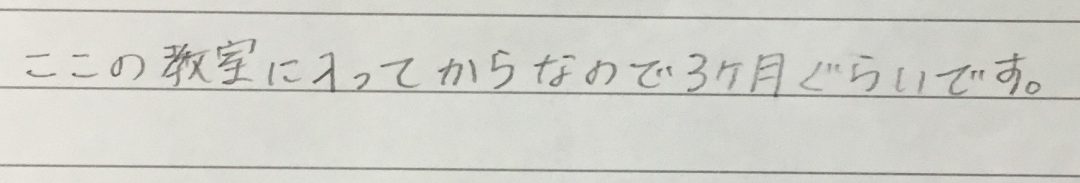 ここの教室に入ってからなので3ケ月ぐらいです。